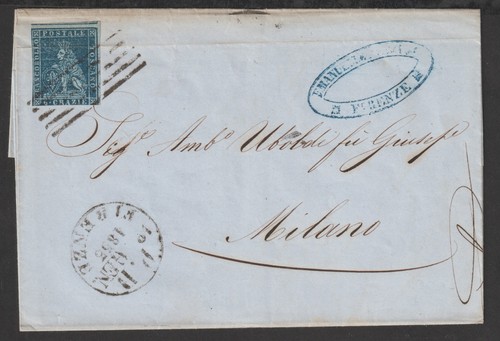 FRANCOBOLLO
POSTALE
TOSCANO
6 CRAZIE
EMANUEL
FIRENZE
Sigr Ambo Uboldi fu Giuseppe
Milano
FIRENZE
GEN